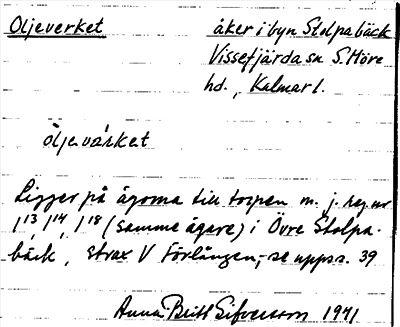 Oljeverket
åker i byn Stolpabäck
Vissefjärda sn S. Möre
hd., Kalmar l.
öljevärket
Ligger på ägorna till torpen m. j. reg. nr
1/13 1/14, 1/18 (samme ägare) i Övre Stolpa-
bäck, strax V Förlången; se upps. 39
Anna Britt Sifversson 1941